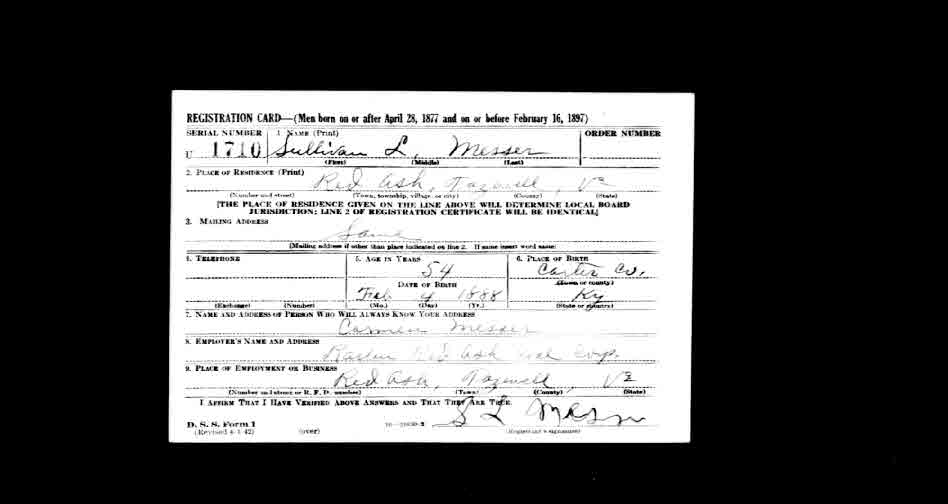 REGISTRATION CARD—(Men born on or after April 28, 1877 and on or before February 16, 1897)
SERIAL NUMBER 1. NAME (Print) ORDER NUMBER
U 1710 Sullivan L. Messer
(First) (Middle) (Last)
2. PLACE OF RESIDENCE (Print)
Red Ash, Tazewell, Va
(Number and street) (Town, township, village, or city) (County) (State)
[THE PLACE OF RESIDENCE GIVEN ON THE LINE ABOVE WILL DETERMINE LOCAL BOARD
JURISDICTION; LINE 2 OF REGISTRATION CERTIFICATE WILL BE IDENTICAL]
3. MAILING ADDRESS
Same
[Mailing address if other than place indicated on line 2. If same insert word same]
4. TELEPHONE 5. AGE IN YEARS 6. PLACE OF BIRTH
54 Carter Co.
DATE OF BIRTH (Town or county)
Feb 4 1888 Ky
(Exchange) (Number) (Mo.) (Day) (Yr.) (State or country)
7. NAME AND ADDRESS OF PERSON WHO WILL ALWAYS KNOW YOUR ADDRESS
Carmen Messer
8. EMPLOYER'S NAME AND ADDRESS
Red Ash Coal Corp.
9. PLACE OF EMPLOYMENT OR BUSINESS
Red Ash, Tazewell, Va
(Number and street or R. F. D. number) (Town) (County) (State)
I AFFIRM THAT I HAVE VERIFIED ABOVE ANSWERS AND THAT THEY ARE TRUE.
S L Messer
D. S. S. Form 1
(Revised 4-1-42) (over) (Registrant's signature)